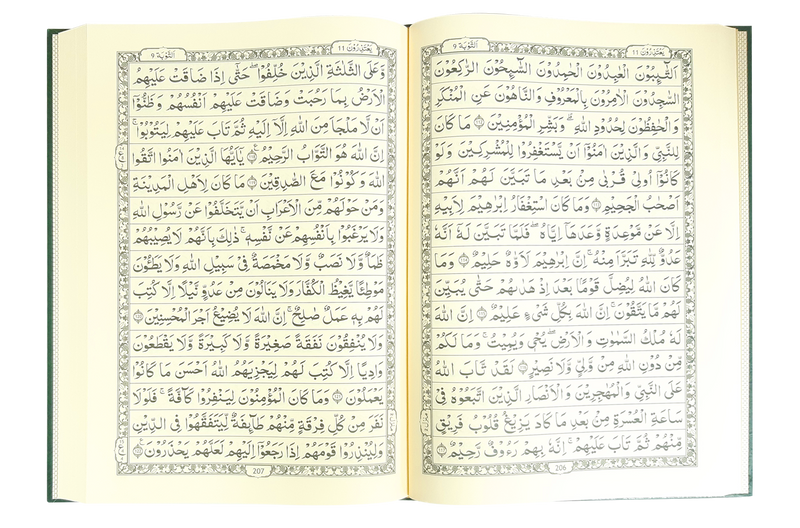 يَعْتَذِرُوْنَ ١١
اَلتَّوْبَة ٩
اَلتَّآئِبُوْنَ الْعٰبِدُوْنَ الْحٰمِدُوْنَ السَّآئِحُوْنَ الرّٰكِعُوْنَ
السّٰجِدُوْنَ الْاٰمِرُوْنَ بِالْمَعْرُوْفِ وَالنَّاهُوْنَ عَنِ الْمُنْكَرِ
وَالْحٰفِظُوْنَ لِحُدُوْدِ اللّٰهِ ؕ وَبَشِّرِ الْمُؤْمِنِيْنَ ۝ مَا كَانَ
لِلنَّبِيِّ وَالَّذِيْنَ اٰمَنُوْۤا اَنْ يَّسْتَغْفِرُوْا لِلْمُشْرِكِيْنَ وَلَوْ
كَانُوْۤا اُولِيْ قُرْبٰى مِنْ بَعْدِ مَا تَبَيَّنَ لَهُمْ اَنَّهُمْ
اَصْحٰبُ الْجَحِيْمِ ۝ وَمَا كَانَ اسْتِغْفَارُ اِبْرٰهِيْمَ لِاَبِيْهِ
اِلَّا عَنْ مَّوْعِدَةٍ وَّعَدَهَاۤ اِيَّاهُ ۚ فَلَمَّا تَبَيَّنَ لَهٗۤ اَنَّهٗ
عَدُوٌّ لِّلّٰهِ تَبَرَّاَ مِنْهُ ؕ اِنَّ اِبْرٰهِيْمَ لَاَوَّاهٌ حَلِيْمٌ ۝ وَمَا
كَانَ اللّٰهُ لِيُضِلَّ قَوْمًۢا بَعْدَ اِذْ هَدٰىهُمْ حَتّٰى يُبَيِّنَ
لَهُمْ مَّا يَتَّقُوْنَ ؕ اِنَّ اللّٰهَ بِكُلِّ شَيْءٍ عَلِيْمٌ ۝ اِنَّ اللّٰهَ
لَهٗ مُلْكُ السَّمٰوٰتِ وَالْاَرْضِ ؕ يُحْيٖ وَيُمِيْتُ ؕ وَمَا لَكُمْ
مِّنْ دُوْنِ اللّٰهِ مِنْ وَّلِيٍّ وَّلَا نَصِيْرٍ ۝ لَقَدْ تَّابَ اللّٰهُ
عَلَى النَّبِيِّ وَالْمُهٰجِرِيْنَ وَالْاَنْصَارِ الَّذِيْنَ اتَّبَعُوْهُ فِيْ
سَاعَةِ الْعُسْرَةِ مِنْۢ بَعْدِ مَا كَادَ يَزِيْغُ قُلُوْبُ فَرِيْقٍ
مِّنْهُمْ ثُمَّ تَابَ عَلَيْهِمْ ؕ اِنَّهٗ بِهِمْ رَءُوْفٌ رَّحِيْمٌ ۝
206
يَعْتَذِرُوْنَ ١١
اَلتَّوْبَة ٩
وَّعَلَى الثَّلٰثَةِ الَّذِيْنَ خُلِّفُوْا ؕ حَتّٰۤى اِذَا ضَاقَتْ عَلَيْهِمُ
الْاَرْضُ بِمَا رَحُبَتْ وَضَاقَتْ عَلَيْهِمْ اَنْفُسُهُمْ وَظَنُّوْۤا
اَنْ لَّا مَلْجَاَ مِنَ اللّٰهِ اِلَّاۤ اِلَيْهِ ؕ ثُمَّ تَابَ عَلَيْهِمْ لِيَتُوْبُوْا ؕ
اِنَّ اللّٰهَ هُوَ التَّوَّابُ الرَّحِيْمُ ۝ يٰۤاَيُّهَا الَّذِيْنَ اٰمَنُوا اتَّقُوا
اللّٰهَ وَكُوْنُوْا مَعَ الصّٰدِقِيْنَ ۝ مَا كَانَ لِاَهْلِ الْمَدِيْنَةِ
وَمَنْ حَوْلَهُمْ مِّنَ الْاَعْرَابِ اَنْ يَّتَخَلَّفُوْا عَنْ رَّسُوْلِ اللّٰهِ
وَلَا يَرْغَبُوْا بِاَنْفُسِهِمْ عَنْ نَّفْسِهٖ ؕ ذٰلِكَ بِاَنَّهُمْ لَا يُصِيْبُهُمْ
ظَمَاٌ وَّلَا نَصَبٌ وَّلَا مَخْمَصَةٌ فِيْ سَبِيْلِ اللّٰهِ وَلَا يَطَئُوْنَ
مَوْطِئًا يَّغِيْظُ الْكُفَّارَ وَلَا يَنَالُوْنَ مِنْ عَدُوٍّ نَّيْلًا اِلَّا كُتِبَ
لَهُمْ بِهٖ عَمَلٌ صَالِحٌ ؕ اِنَّ اللّٰهَ لَا يُضِيْعُ اَجْرَ الْمُحْسِنِيْنَ ۝
وَلَا يُنْفِقُوْنَ نَفَقَةً صَغِيْرَةً وَّلَا كَبِيْرَةً وَّلَا يَقْطَعُوْنَ
وَادِيًا اِلَّا كُتِبَ لَهُمْ لِيَجْزِيَهُمُ اللّٰهُ اَحْسَنَ مَا كَانُوْا
يَعْمَلُوْنَ ۝ وَمَا كَانَ الْمُؤْمِنُوْنَ لِيَنْفِرُوْا كَآفَّةً ؕ فَلَوْلَا
نَفَرَ مِنْ كُلِّ فِرْقَةٍ مِّنْهُمْ طَآئِفَةٌ لِّيَتَفَقَّهُوْا فِي الدِّيْنِ
وَلِيُنْذِرُوْا قَوْمَهُمْ اِذَا رَجَعُوْۤا اِلَيْهِمْ لَعَلَّهُمْ يَحْذَرُوْنَ ۝
207